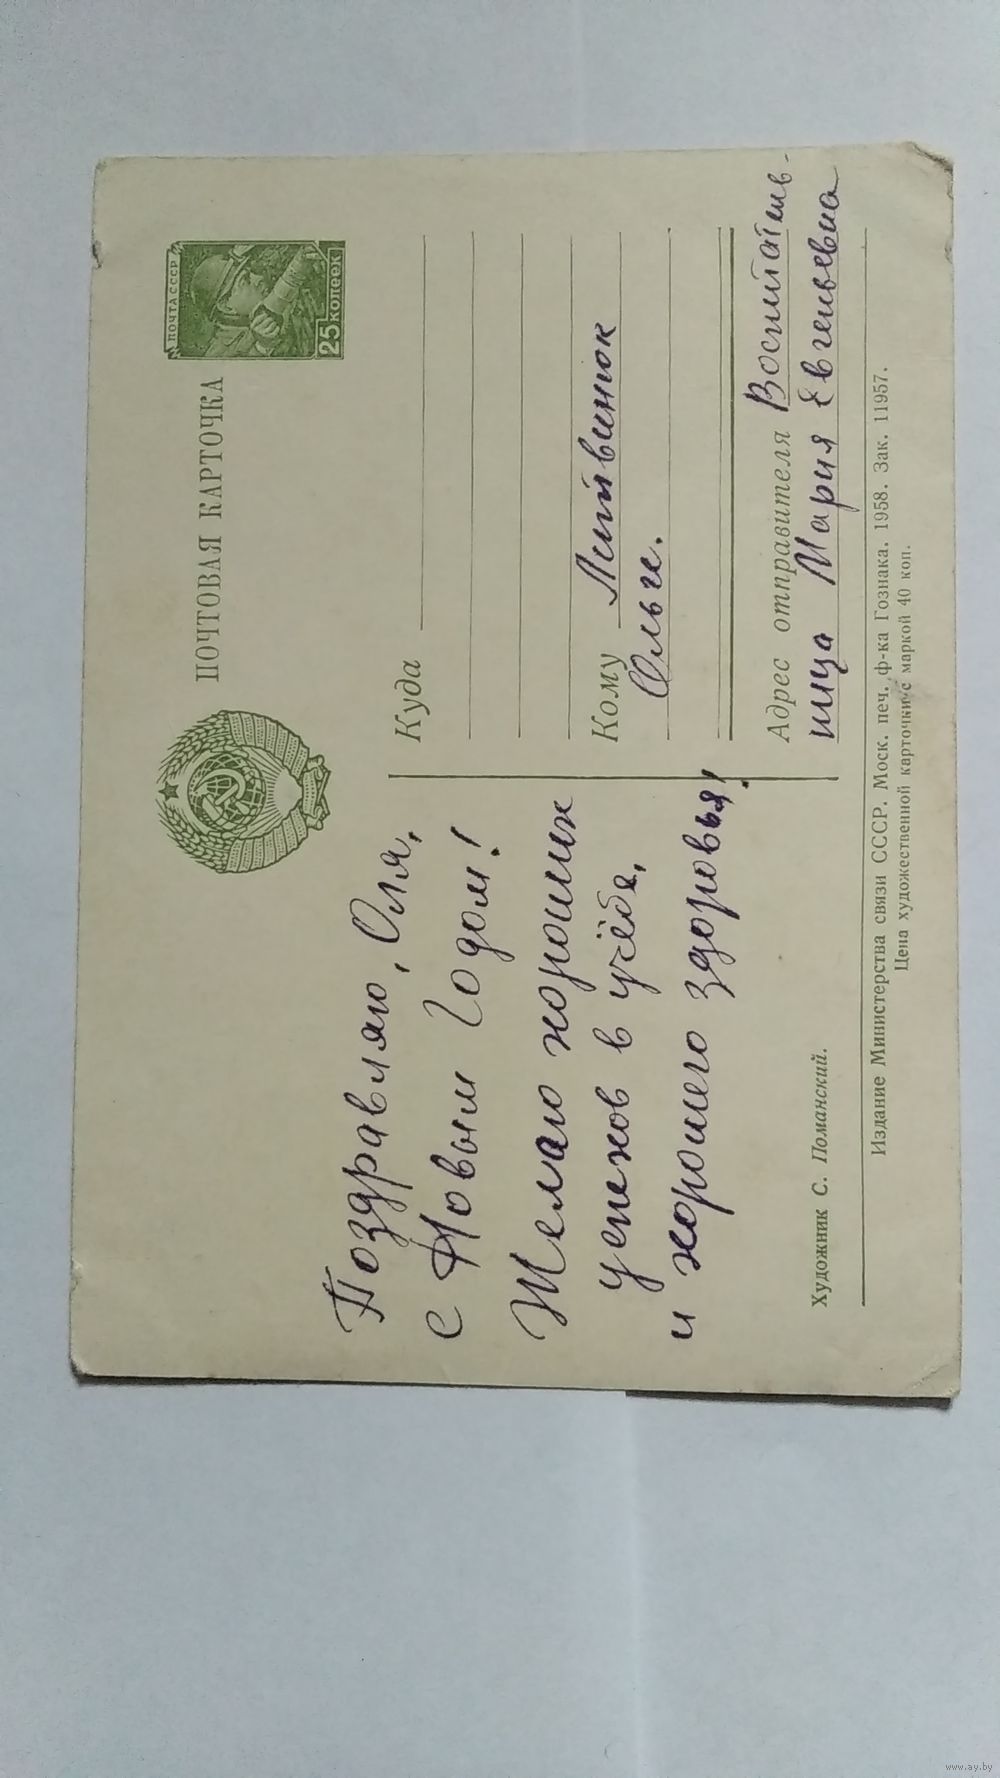 ПОЧТОВАЯ КАРТОЧКА
ПОЧТА СССР
25 копеек
Поздравляю, Оля,
с Новым Годом!
Желаю хороших
успехов в учёбе,
и хорошего здоровья!
Художник С. Поманский.
Куда
Кому Литвинюк
Ольге.
Адрес отправителя Воспитатель-
ница Мария Евгеньевна
Издание Министерства связи СССР. Моск. печ. ф-ка Гознака. 1958. Зак. 11957.
Цена художественной карточки с маркой 40 коп.
www.ay.by